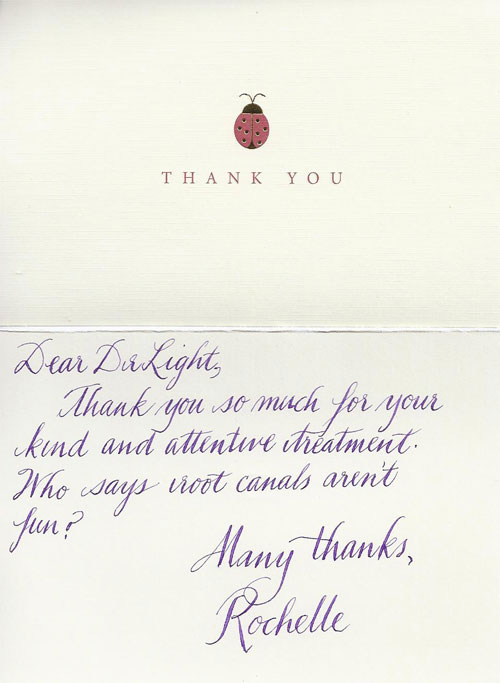 THANK YOU
Dear Dr Light,
Thank you so much for your
kind and attentive treatment.
Who says root canals aren't
fun?
Many thanks,
Rochelle